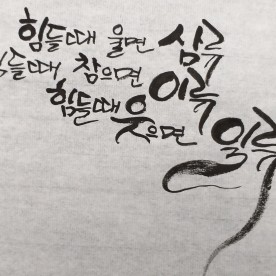 힘들때 울면 삼류
힘들때 참으면 이류
힘들때 웃으면 일류